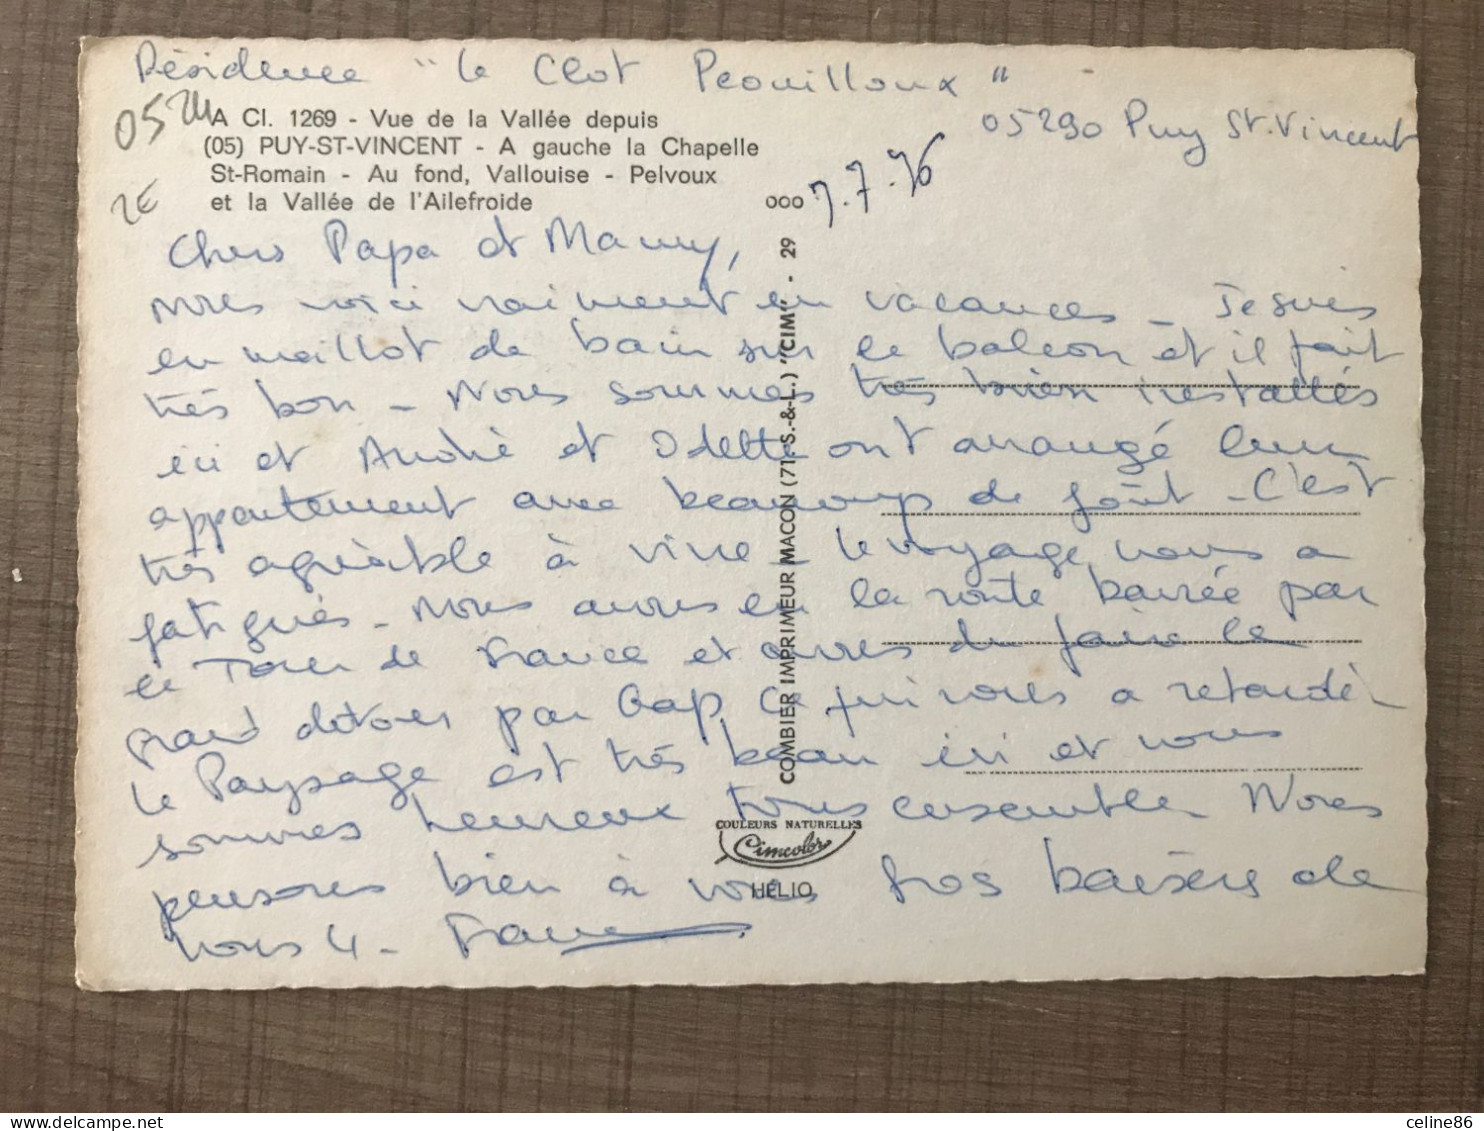 Résidence "le Clot Peouilloux"
05290 Puy St. Vincent
05 
2€
A Cl. 1269 - Vue de la Vallée depuis
(05) PUY-ST-VINCENT - A gauche la Chapelle
St-Romain - Au fond, Vallouise - Pelvoux
et la Vallée de l'Ailefroide
000 7.7.76
Chers Papa et Mamy,
nous voici vraiment en vacances - Je suis
en maillot de bain sur le balcon et il fait
très bon - Nous sommes très bien installés
ici et André et Odette ont arrangé leur
appartement avec beaucoup de goût - C'est
très agréable à vivre - le voyage nous a
fatigués - nous avons eu la route barrée par
le Tour de France et avons du faire le
grand détour par Gap ce qui nous a retardé
le Paysage est très beau ici et nous
sommes heureux tous ensemble Nous
pensons bien à vous Gros baisers de
nous 4 - France
COMBIER IMPRIMEUR MACON (71 - S.-&-L.) "CIM" - 29
COULEURS NATURELLES
Cimcolor
HÉLIO
celine86